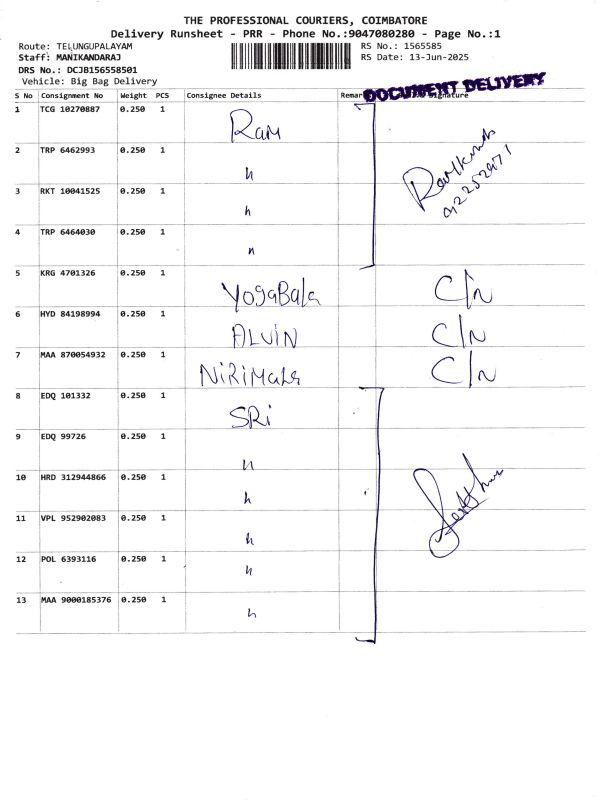 THE PROFESSIONAL COURIERS, COIMBATORE
Delivery Runsheet - PRR - Phone No.:9047080280 - Page No.:1
Route: TELUNGUPALAYAM RS No.: 1565585
Staff: MANIKANDARAJ RS Date: 13-Jun-2025
DRS No.: DCJB156558501
Vehicle: Big Bag Delivery
DOCUMENT DELIVERY
S No Consignment No Weight PCS Consignee Details Remar Signature
1 TCG 10270887 0.250 1 Ram
2 TRP 6462993 0.250 1 "
3 RKT 10041525 0.250 1 "
4 TRP 6464030 0.250 1 "
5 KRG 4701326 0.250 1 YogaBala C/n
6 HYD 84198994 0.250 1 ALVIN C/n
7 MAA 870054932 0.250 1 NiRiMala C/n
8 EDQ 101332 0.250 1 SRi
9 EDQ 99726 0.250 1 "
10 HRD 312944866 0.250 1 "
11 VPL 952902083 0.250 1 "
12 POL 6393116 0.250 1 "
13 MAA 9000185376 0.250 1 "